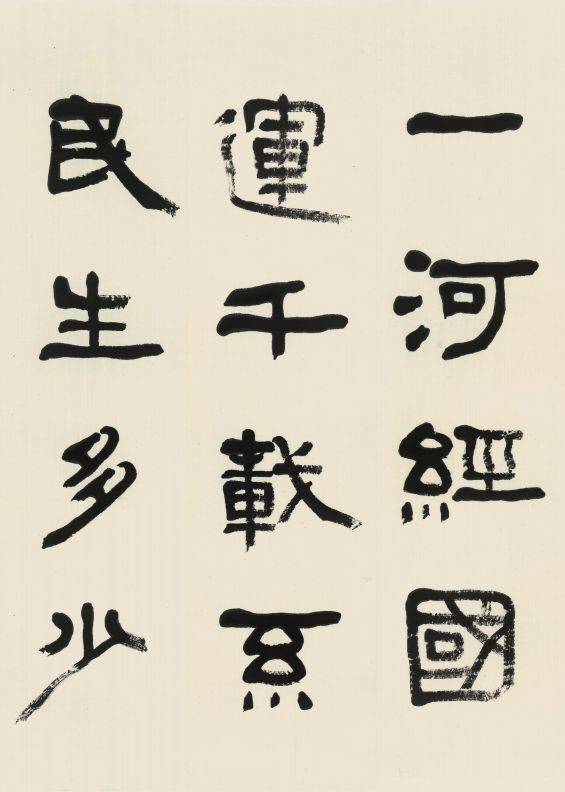 一河經國
運千載系
民生多少